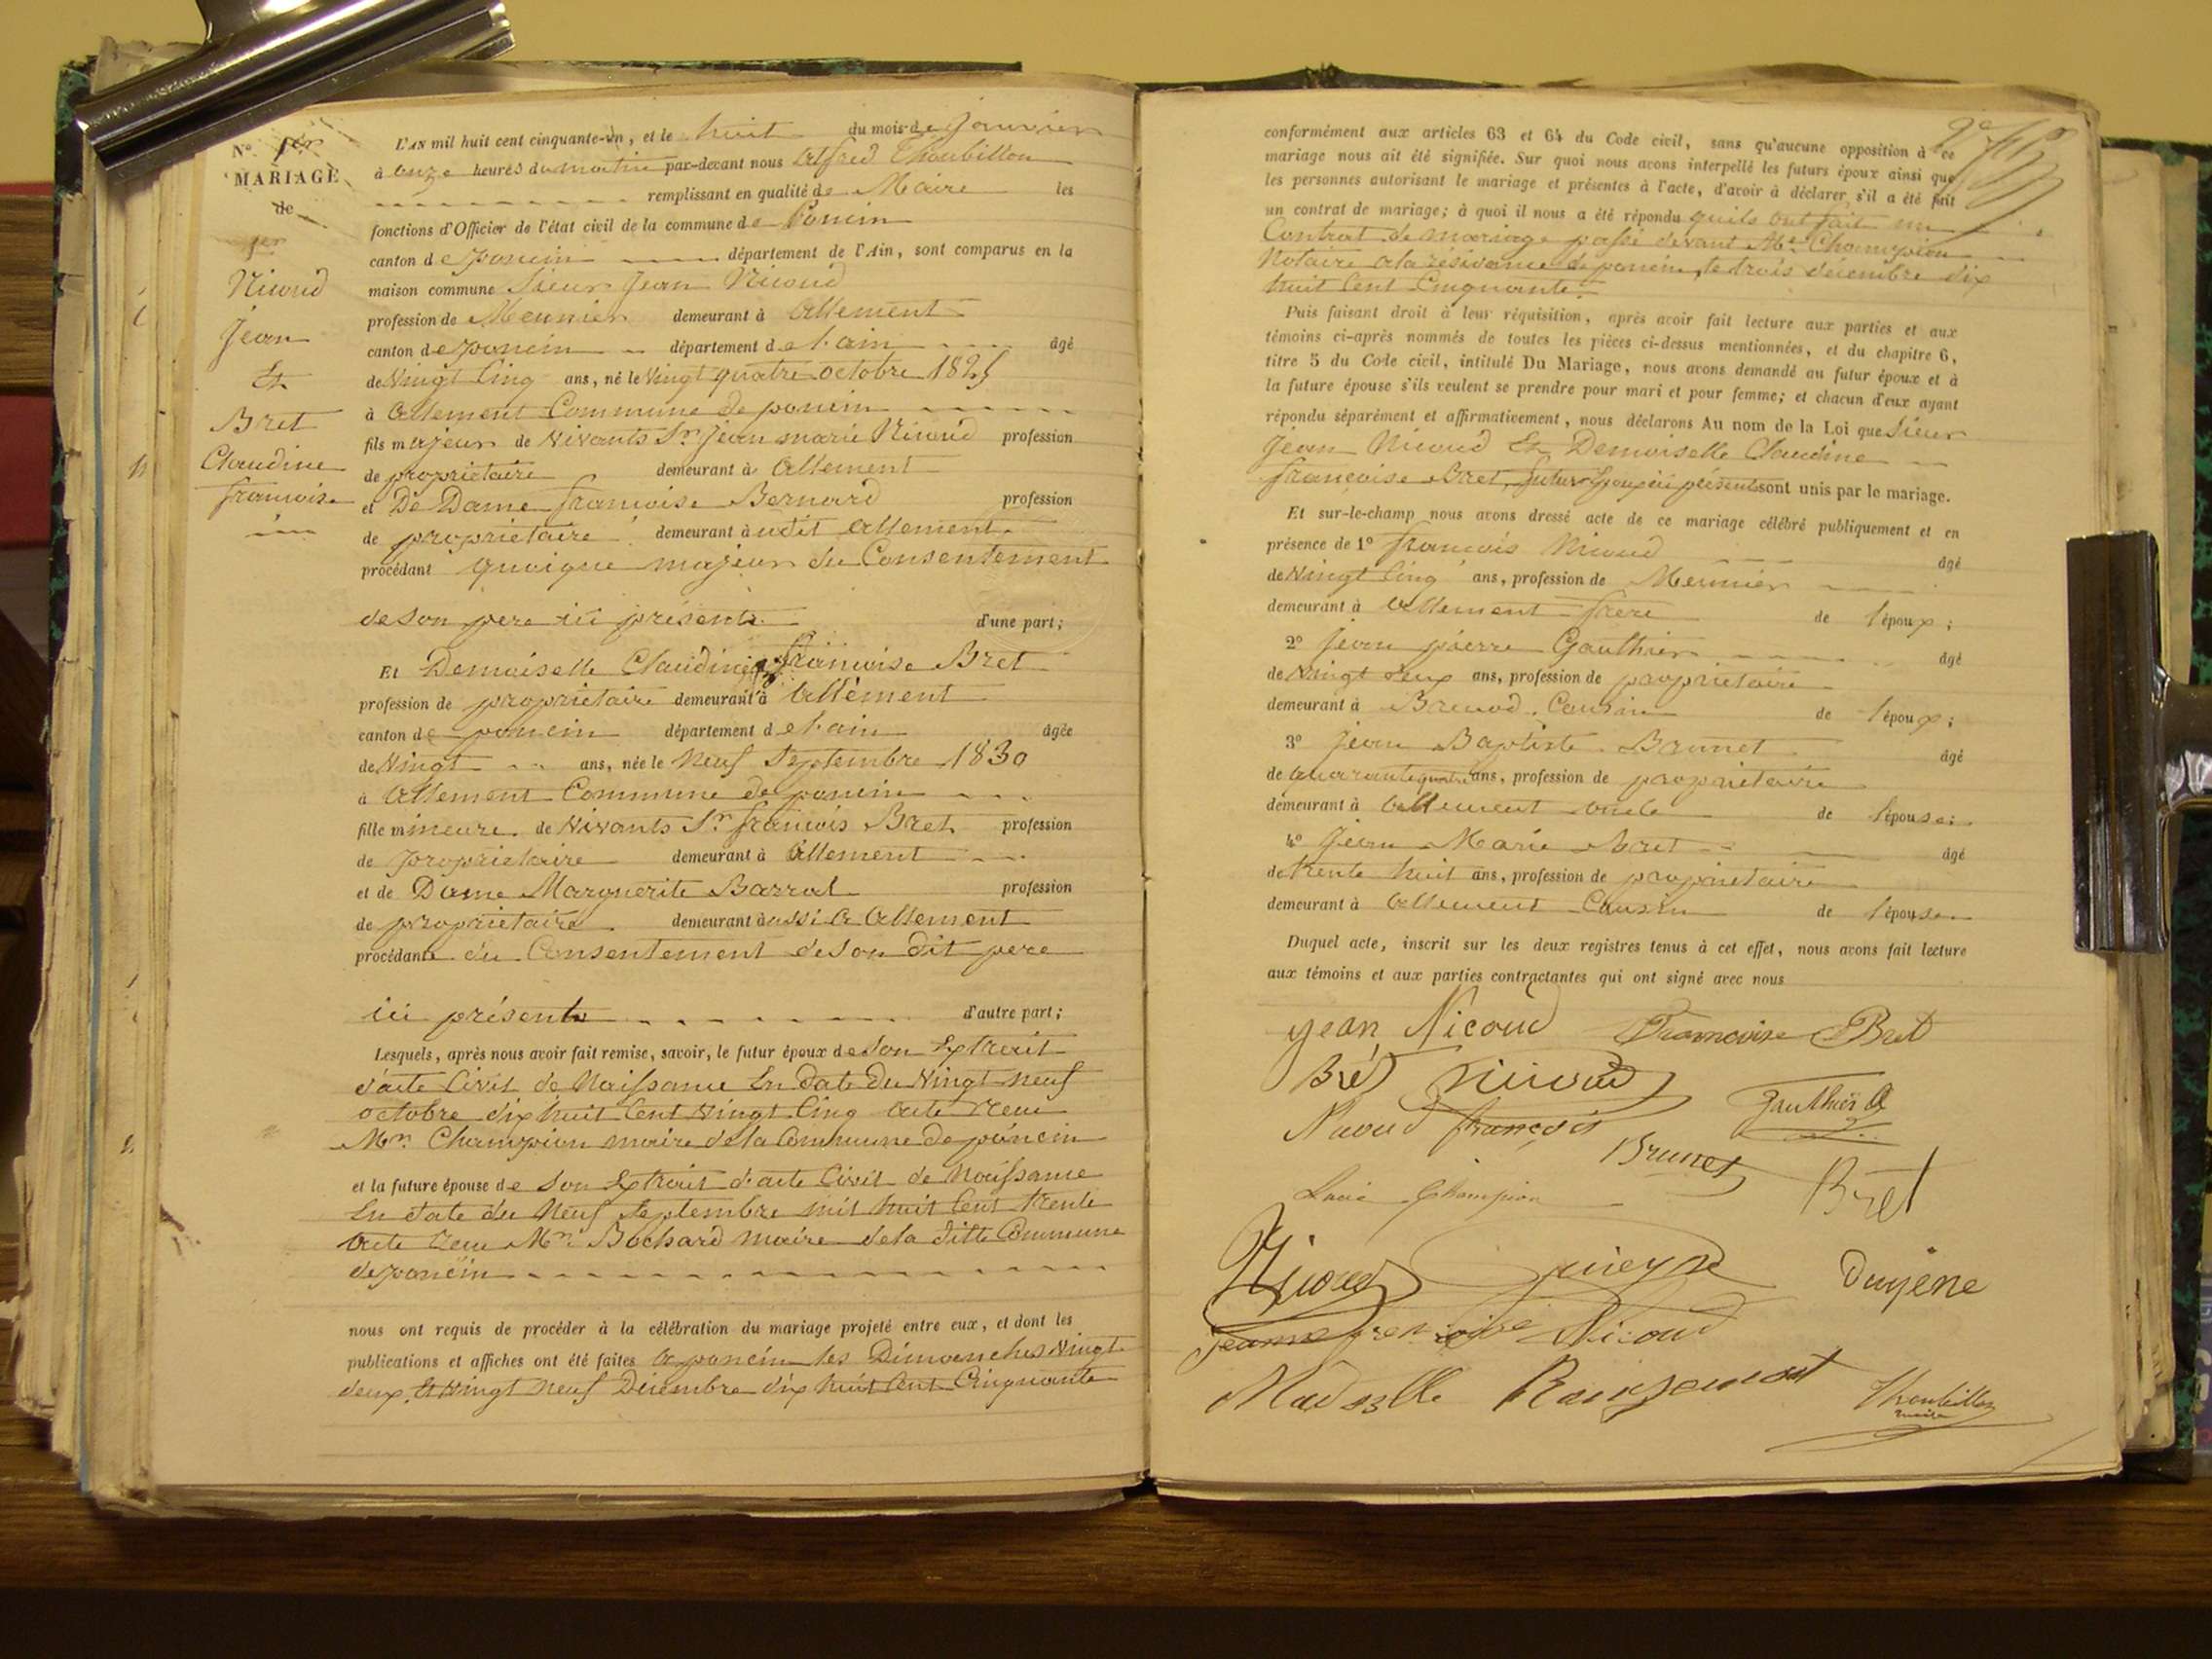 N° 1er
MARIAGE
de
1er
Nicoud
Jean
Et
Bret
Claudine
francoise
L'AN mil huit cent cinquante-un, et le huit du mois de Janvier
à onze heures du matin par-devant nous Alfred Thoubillon
remplissant en qualité de Maire les
fonctions d'Officier de l'état civil de la commune de Poncin
canton de poncin département de l'Ain, sont comparus en la
maison commune Sieur Jean Nicoud
profession de Meunier demeurant à Allement
canton de poncin département de l'ain âgé
de Vingt Cinq ans, né le Vingt quatre octobre 1825
à Allement Commune de poncin
fils majeur de Vivants Sr Jean marie Nicoud profession
de propriétaire demeurant à Allement
et De Dame francoise Bernard profession
de propriétaire demeurant à udit Allement
procédant quoique majeur du Consentement
de son pere ici présent d'une part;
Et Demoiselle Claudine francoise Bret
profession de propriétaire demeurant à Allement
canton de poncin département de l'ain âgée
de Vingt ans, née le Neuf Septembre 1830
à Allement Commune de poncin
fille mineure de Vivants Sr francois Bret profession
de propriétaire demeurant à Allement
et de Dame Marguerite Barral profession
de propriétaire demeurant à ussi a Allement
procédante du Consentement de son dit pere
ici présent d'autre part;
Lesquels, après nous avoir fait remise, savoir, le futur époux de son Extrait
d'acte Civil de Naissance En date du Vingt neuf
octobre dix huit Cent Vingt Cinq acte recu
Mr. Champion maire de la Commune de poncin
et la future épouse de son Extrait d'acte Civil de Naissance
En date du Neuf Septembre mil huit Cent trente
acte recu Mr. Bochard maire de la ditte Commune
de poncin
nous ont requis de procéder à la célébration du mariage projeté entre eux, et dont les
publications et affiches ont été faites a poncin les Dimanches Vingt
deux Et Vingt Neuf Décembre dix huit Cent Cinquante
conformément aux articles 63 et 64 du Code civil, sans qu'aucune opposition à ce
mariage nous ait été signifiée. Sur quoi nous avons interpellé les futurs époux ainsi que
les personnes autorisant le mariage et présentes à l'acte, d'avoir à déclarer s'il a été fait
un contrat de mariage; à quoi il nous a été répondu quils ont fait un
Contrat de mariage passé devant Me Champion
Notaire a la résidance de poncin, le trois décembre dix
huit Cent Cinquante.
Puis faisant droit à leur réquisition, après avoir fait lecture aux parties et aux
témoins ci-après nommés de toutes les pièces ci-dessus mentionnées, et du chapitre 6,
titre 5 du Code civil, intitulé Du Mariage, nous avons demandé au futur époux et à
la future épouse s'ils veulent se prendre pour mari et pour femme; et chacun d'eux ayant
répondu séparément et affirmativement, nous déclarons Au nom de la Loi que Sieur
Jean Nicoud Et Demoiselle Claudine
francoise Bret, futurs Epoux ici présents sont unis par le mariage.
Et sur-le-champ nous avons dressé acte de ce mariage célébré publiquement et en
présence de 1° francois Nicoud âgé
de Vingt Cinq ans, profession de Meunier
demeurant à Allement frère de l'époux;
2° Jean pierre Gauthier âgé
de Vingt deux ans, profession de propriétaire
demeurant à Brenod Cousin de l'époux;
3° Jean Baptiste Brunet âgé
de quarante quatre ans, profession de propriétaire
demeurant à Allement oncle de l'épouse;
4° Jean Marie Bret âgé
de trente huit ans, profession de propriétaire
demeurant à Allement Cousin de l'épouse
Duquel acte, inscrit sur les deux registres tenus à cet effet, nous avons fait lecture
aux témoins et aux parties contractantes qui ont signé avec nous
jean Nicoud Francoise Bret
Bret Nicoud
Nicoud françois Gauthier
Brunet
Champion Bret
Nicoud Dujene
jeanne Nicoud
Thoubillon
maire